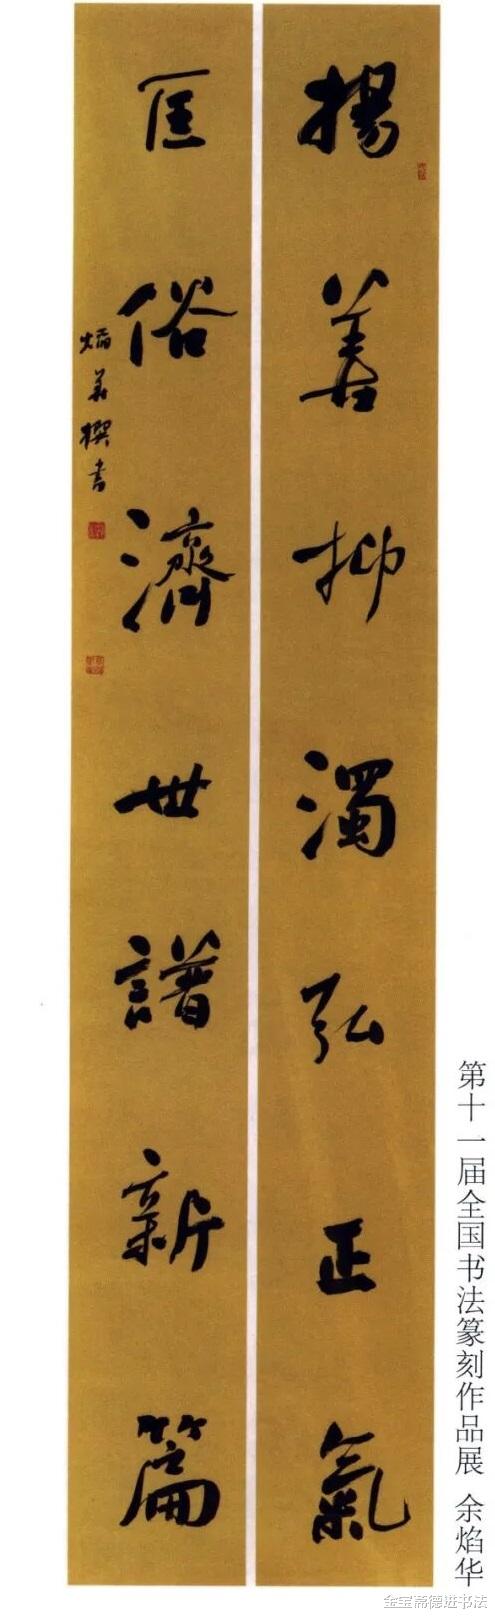 揚善抑濁弘正氣
匡俗濟世譜新篇
焰華撰书
第十一届全国书法篆刻作品展 余焰华
金宝斋德进书法